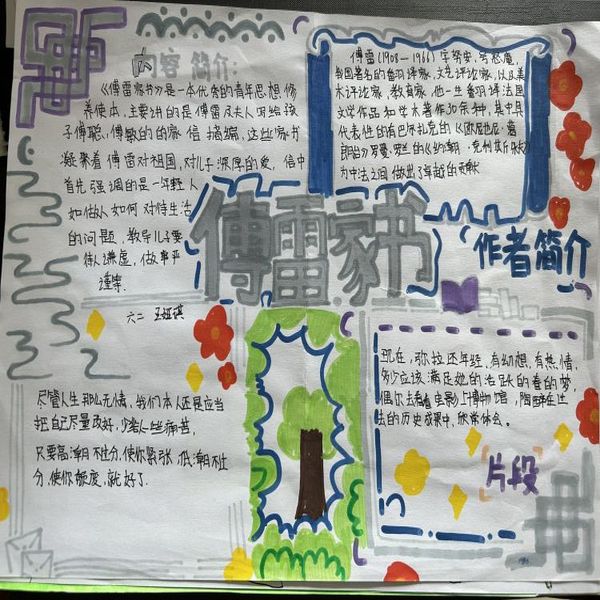 内容简介:
《傅雷家书》是一本优秀的青年思想修
养读本,主要讲的是傅雷及夫人写给孩
子傅聪、傅敏的的家信摘编,这些家书
凝聚着傅雷对祖国,对儿子深厚的爱,信中
首先强调的是一个年轻人
如做人如何对待生活
的问题,教导儿子要
待人谦虚,做事严
谨
傅雷(1908—1966)字努安,号怒庵,
我国著名的翻译家,文艺评论家,以及美
术评论家,教育家,他一生翻译法国
文学作品和学术著作30余种,其中具
代表性的有巴尔扎克的《欧也妮·葛
朗台》罗曼·罗兰的《约翰·克利斯朵夫》
为中法之间做出了卓越的贡献
傅雷家书
作者简介
六二
尽管人生那么无情,我们本人还是应当
把自己尽量改好,少给人一些痛苦,
只要高潮不过分使你紧张,低潮不过
分使你颓废,就好了.
现在,弥拉还年轻,有幻想,有热情,
多少应该满足她的活跃的青春的梦,
偶尔去看看电影上博物馆,陶醉在过
去的历史成果中,欣常体会。
片段